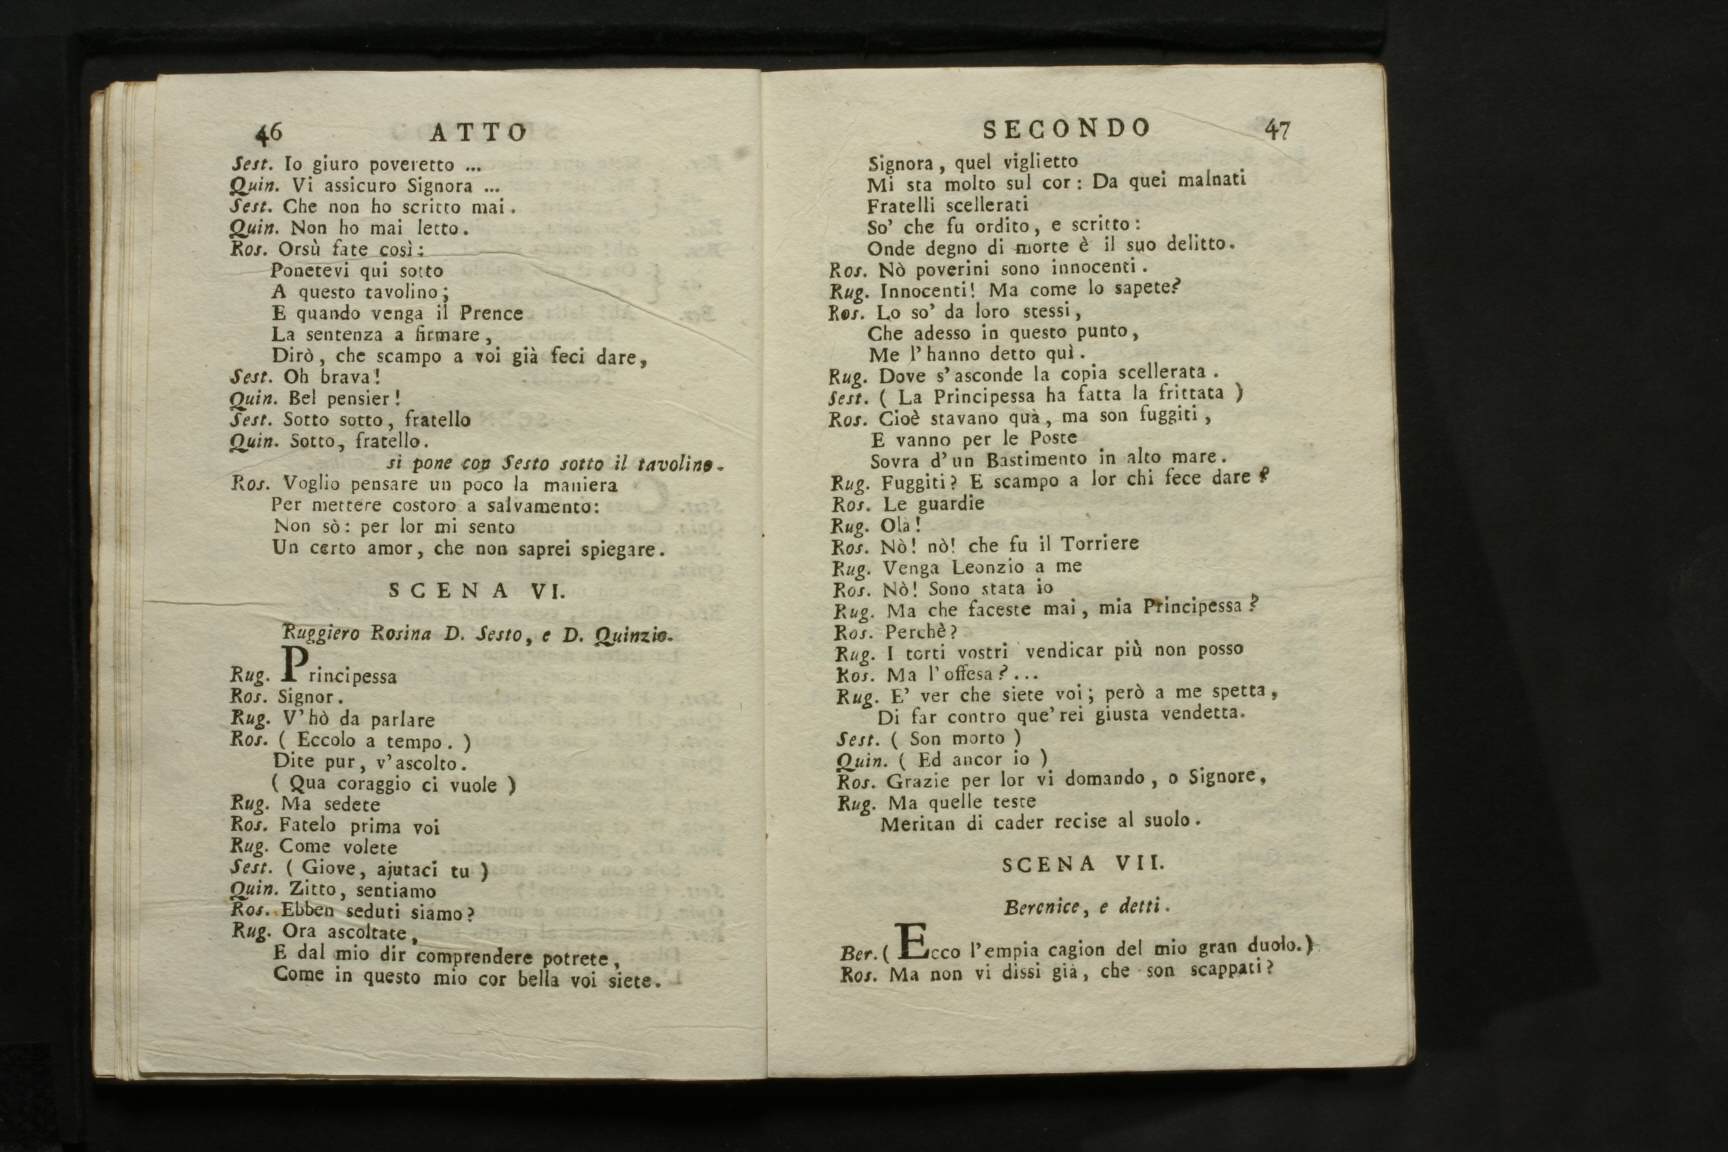 46 ATTO
Sest. Io giuro poveretto ...
Quin. Vi assicuro Signora ...
Sest. Che non ho scritto mai.
Quin. Non ho mai letto.
Ros. Orsù fate così:
Ponetevi qui sotto
A questo tavolino;
E quando venga il Prence
La sentenza a firmare,
Dirò, che scampo a voi già feci dare,
Sest. Oh brava!
Quin. Bel pensier!
Sest. Sotto sotto, fratello
Quin. Sotto, fratello.
si pone con Sesto sotto il tavolino.
Ros. Voglio pensare un poco la maniera
Per mettere costoro a salvamento:
Non sò: per lor mi sento
Un certo amor, che non saprei spiegare.
SCENA VI.
Ruggiero Rosina D. Sesto, e D. Quinzio.
Rug. Principessa
Ros. Signor.
Rug. V'hò da parlare
Ros. ( Eccolo a tempo. )
Dite pur, v'ascolto.
( Qua coraggio ci vuole )
Rug. Ma sedete
Ros. Fatelo prima voi
Rug. Come volete
Sest. ( Giove, ajutaci tu )
Quin. Zitto, sentiamo
Ros. Ebben seduti siamo?
Rug. Ora ascoltate,
E dal mio dir comprendere potrete,
Come in questo mio cor bella voi siete.
SECONDO 47
Signora, quel viglietto
Mi sta molto sul cor: Da quei malnati
Fratelli scellerati
So' che fu ordito, e scritto:
Onde degno di morte è il suo delitto.
Ros. Nò poverini sono innocenti.
Rug. Innocenti! Ma come lo sapete?
Ros. Lo so' da loro stessi,
Che adesso in questo punto,
Me l'hanno detto quì.
Rug. Dove s'asconde la copia scellerata.
Sest. ( La Principessa ha fatta la frittata )
Ros. Cioè stavano quà, ma son fuggiti,
E vanno per le Poste
Sovra d'un Bastimento in alto mare.
Rug. Fuggiti? E scampo a lor chi fece dare?
Ros. Le guardie
Rug. Olà!
Ros. Nò! nò! che fu il Torriere
Rug. Venga Leonzio a me
Ros. Nò! Sono stata io
Rug. Ma che faceste mai, mia Principessa?
Ros. Perchè?
Rug. I torti vostri vendicar più non posso
Ros. Ma l'offesa?...
Rug. E' ver che siete voi; però a me spetta,
Di far contro que'rei giusta vendetta.
Sest. ( Son morto )
Quin. ( Ed ancor io )
Ros. Grazie per lor vi domando, o Signore,
Rug. Ma quelle teste
Meritan di cader recise al suolo.
SCENA VII.
Berenice, e detti.
Ber. ( Ecco l'empia cagion del mio gran duolo.)
Ros. Ma non vi dissi già, che son scappati?